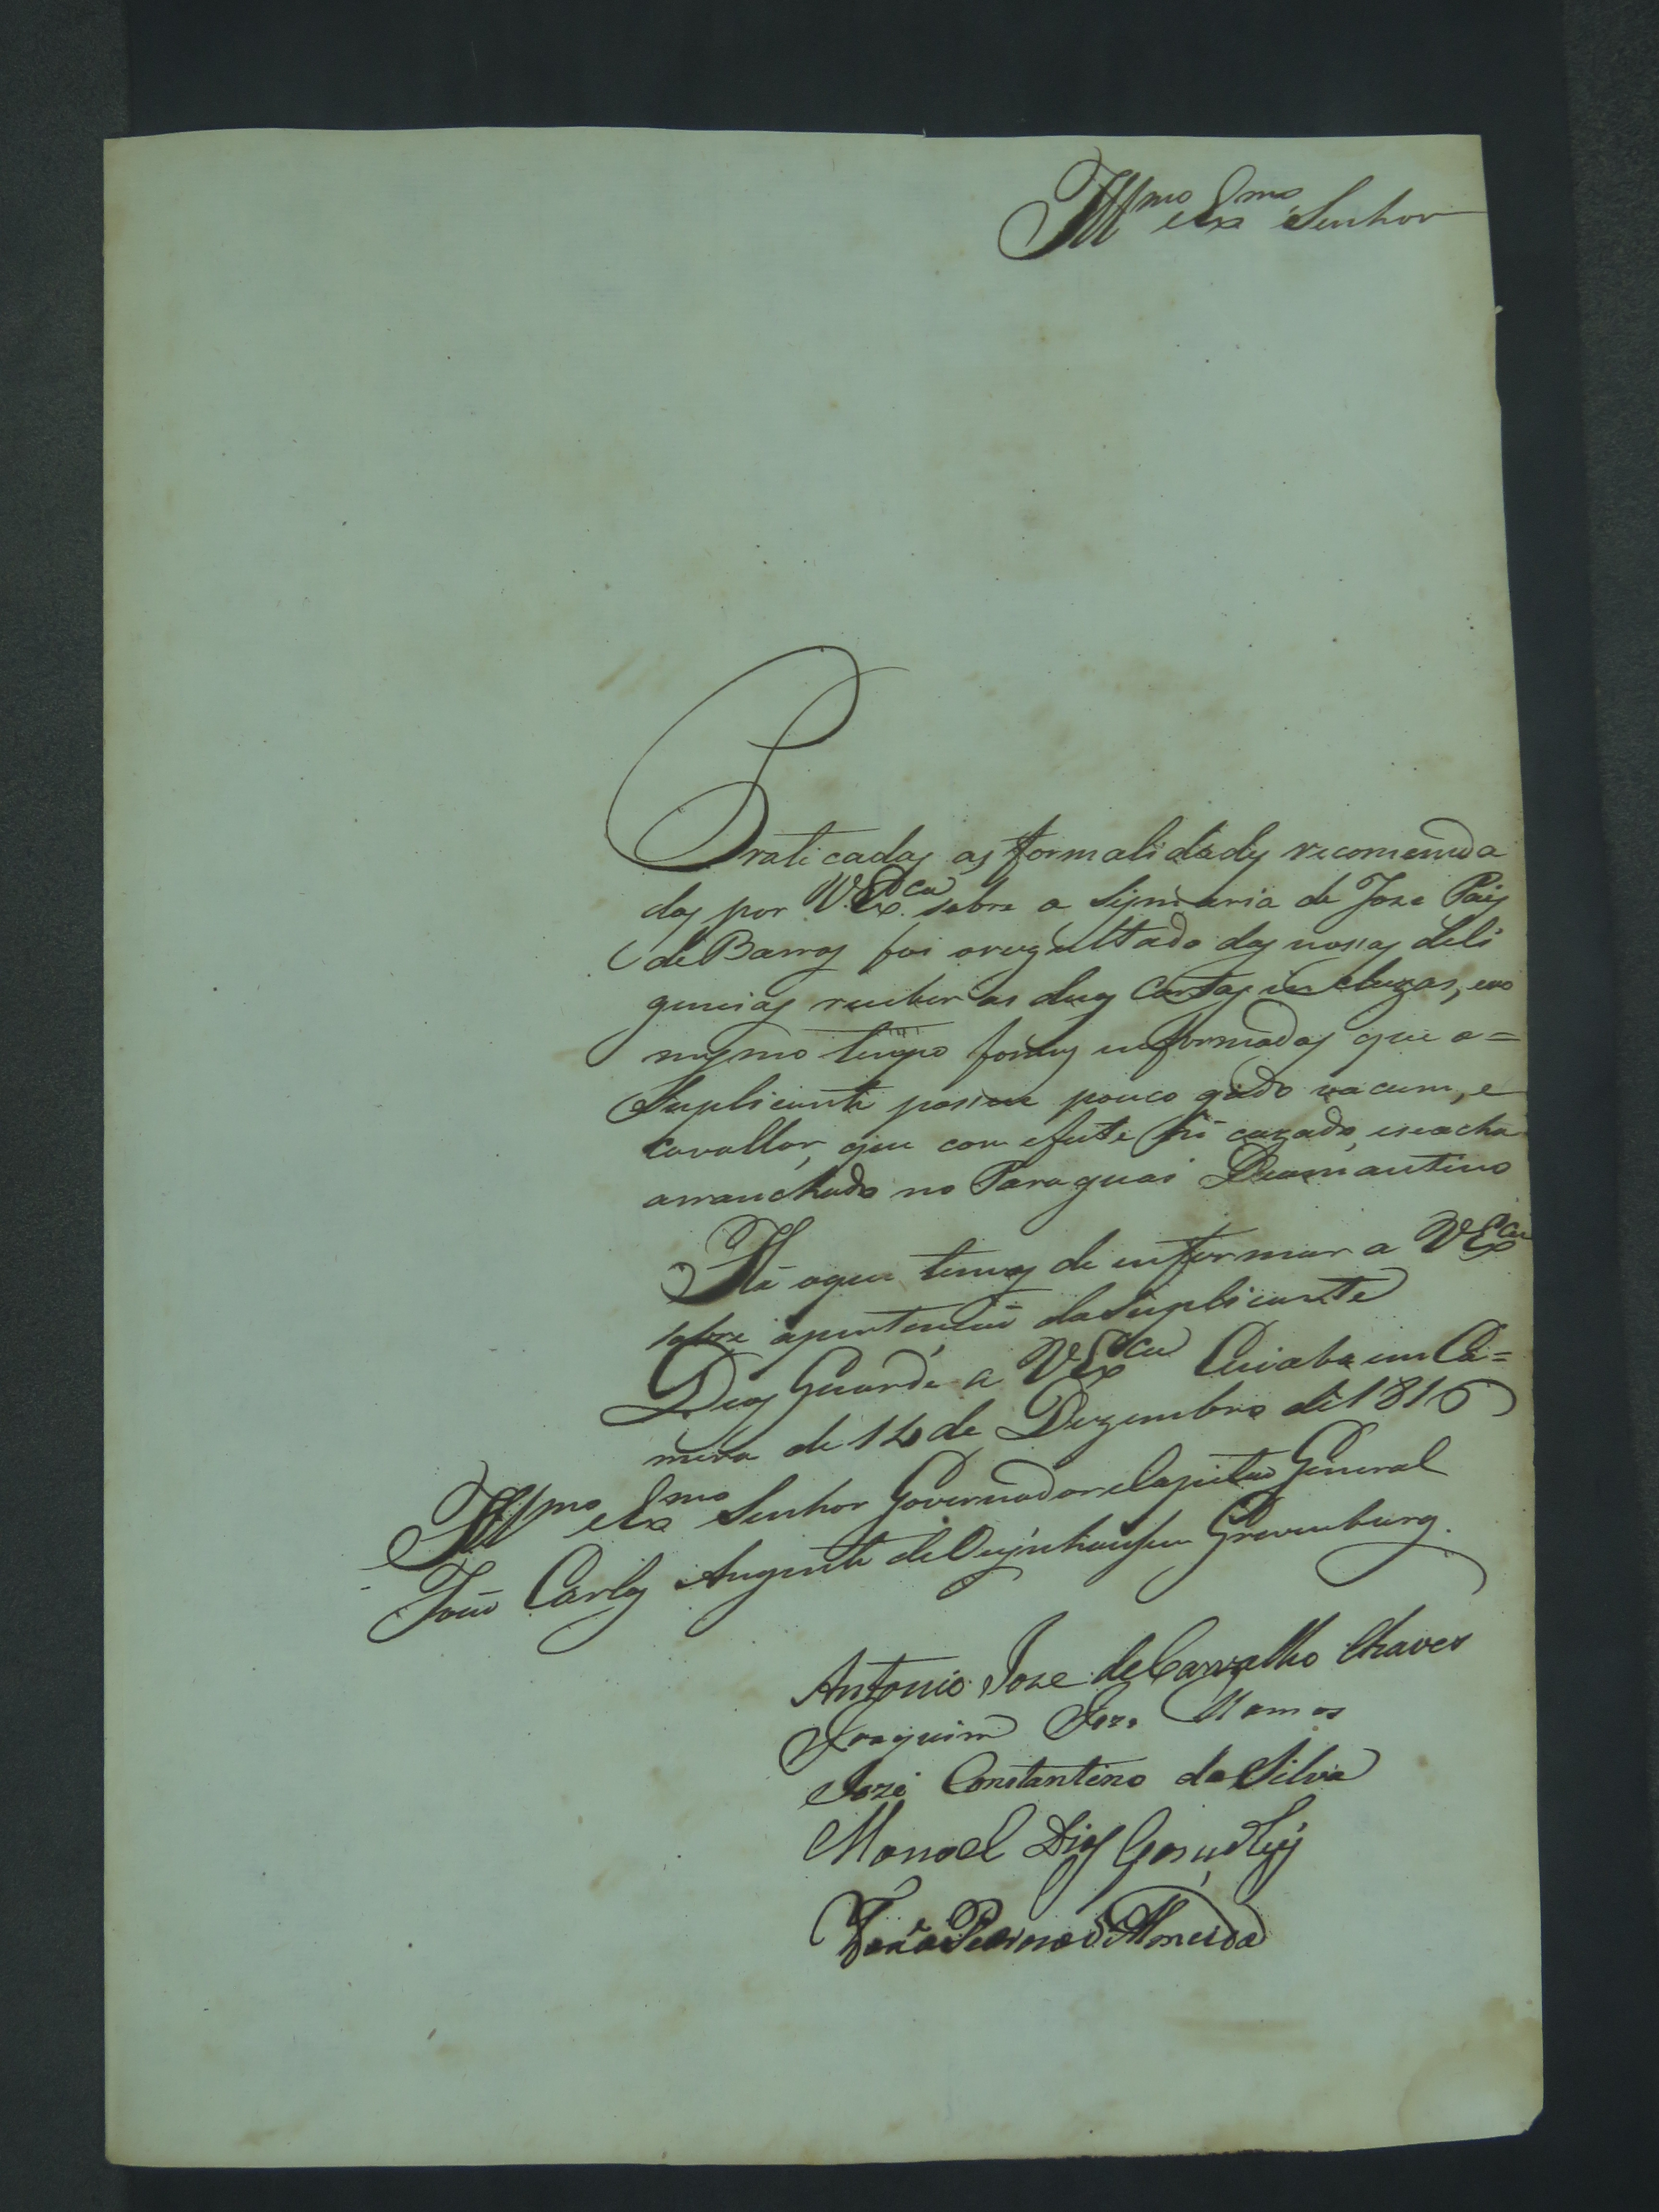 Ill.mo e Ex.mo Senhor
Praticadas as formalidades recomenda
das por V. Ex.cia sobre a Sismaria de Joze Pais
de Barros foi orezultado das nossas deli
gencias receber as duas Cartas incluzas, eno
mesmo tempo fomos informados que o=
Suplicante possue pouco gado vacum, e
cavallar, que com efeito hé cazado, eseacha
arranchado no Paraguai Diamantino
Hé oque temos de informar a V Ex.cia
sobre apertenção doSuplicante
Deos Guarde a V Ex.cia Cuiaba em Ca=
mera de 14 de Dezembro de 1816
Ill.mo e Ex.mo Senhor Governador eCapitão General
João Carlos Augusto deOeynhausen Grevenburg.
Antonio Joze deCarvalho Chaves
Joaquim Joze Ramos
Jozé Constantino da Silva
Manoel Dias
João de Almeida